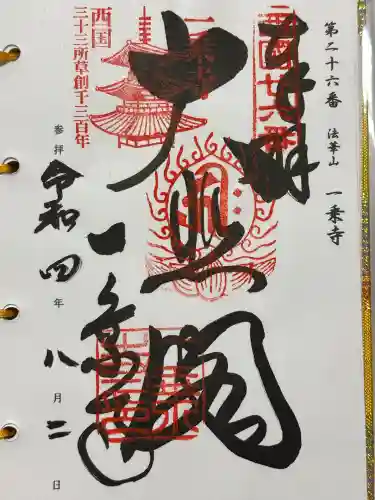 第二十六番 法華山 一乗寺
奉拝
西國廿六番
大悲閣
一乗寺
西国
三十三所草創千三百年
参拝 令和四年八月二日